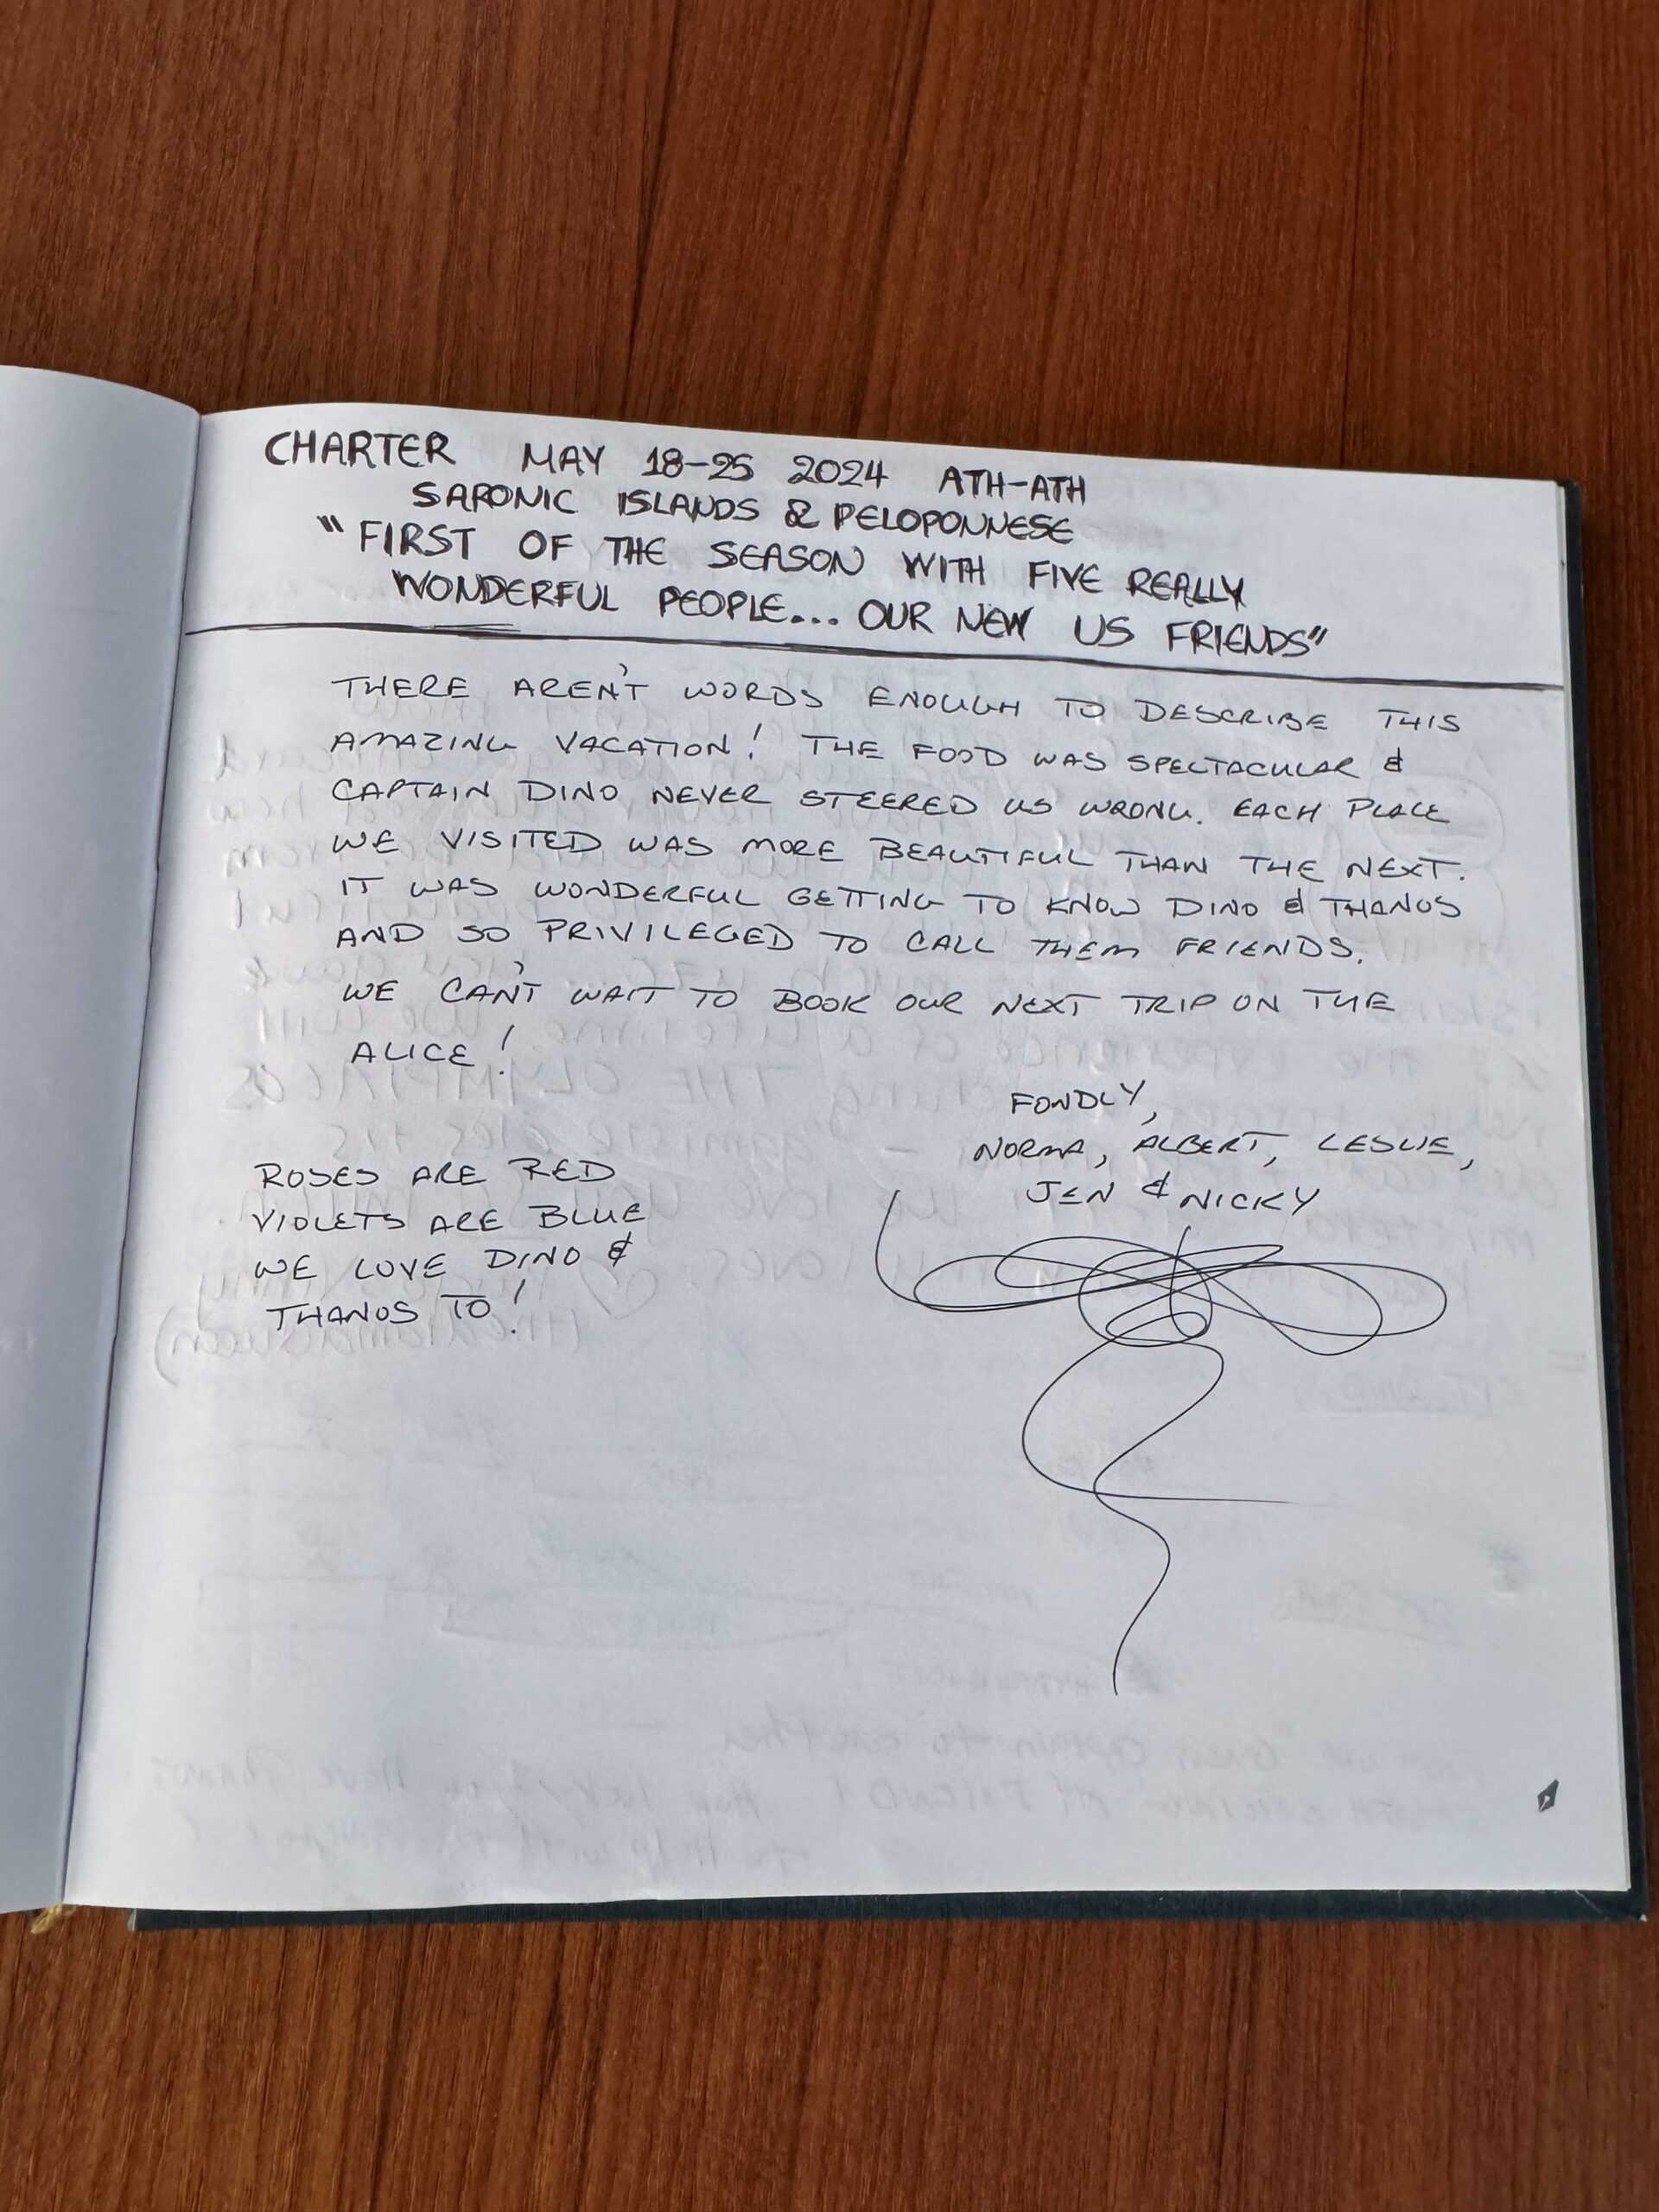 CHARTER MAY 18-25 2024 ATH-ATH
SARONIC ISLANDS & PELOPONNESE
"FIRST OF THE SEASON WITH FIVE REALLY
WONDERFUL PEOPLE... OUR NEW US FRIENDS"
THERE AREN'T WORDS ENOUGH TO DESCRIBE THIS
AMAZING VACATION! THE FOOD WAS SPECTACULAR &
CAPTAIN DINO NEVER STEERED US WRONG. EACH PLACE
WE VISITED WAS MORE BEAUTIFUL THAN THE NEXT.
IT WAS WONDERFUL GETTING TO KNOW DINO & THANOS
AND SO PRIVILEGED TO CALL THEM FRIENDS.
WE CAN'T WAIT TO BOOK OUR NEXT TRIP ON THE
ALICE!
FONDLY,
NORMA, ALBERT, LESLIE,
JEN & NICKY
ROSES ARE RED
VIOLETS ARE BLUE
WE LOVE DINO &
THANOS TO!